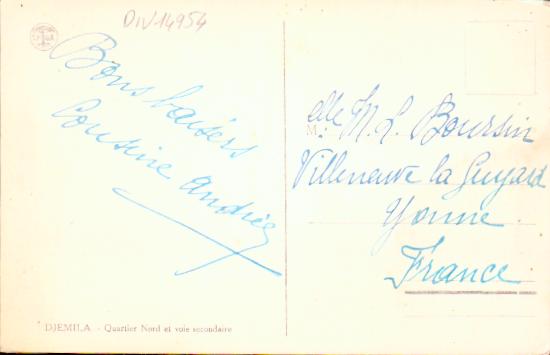 DIV14954
Bons baisers
Cousine Andrée
M.elle M. L. Boursin
Villeneuve la Guyard
Yonne
France
DJEMILA - Quartier Nord et voie secondaire